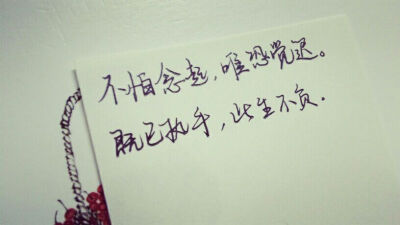 不怕念起，唯恐觉迟。
既已执手，此生不负.